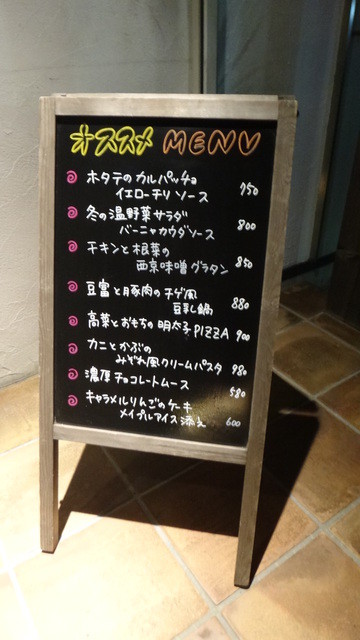 オススメ MENU
ホタテのカルパッチョ
イエローチリソース 750
冬の温野菜サラダ
バーニャカウダソース 800
チキンと根菜の
西京味噌グラタン 850
豆富と豚肉のチゲ風
豆乳鍋 880
高菜とおもちの明太子PIZZA 900
カニとかぶの
みぞれ風クリームパスタ 980
濃厚チョコレートムース 580
キャラメルりんごのケーキ
メイプルアイス添え 600